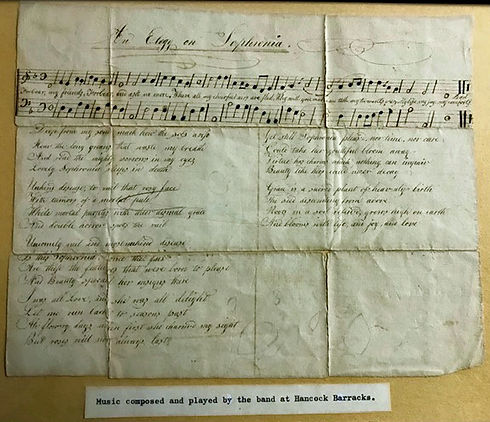 An Elegy on Sophronia.
Forbear, my friends, forbear, and ask no more, Where all my cheerful airs are fled, Why will you make me talk my torments o'er, My life, my joy, my comfort's
Deep from my soul mark how the sobs arise
Hear the long groans that waste my breath
And read the mighty sorrows in my eyes
Lovely Sophronia sleeps in death
Unkind disease, to veil that rosy face
With tumors of a mortal pale
While mortal purples with their dismal grace
And double horror spots the veil
Uncomely veil and most unkind disease
Is this Sophronia, once the fair
Are these the features that were born to please
And Beauty spread her ensigns there
I was all love, and she was all delight
Let me run back to seasons past
Ah flowery days when first she charmed my sight
But roses will not always last
Yet still Sophronia pleas'd, nor time, nor care
Could take her youthful bloom away
Virtue has charms which nothing can impair
Beauty like hers could never decay
Grace is a sacred plant of heavenly birth
The seed descending from above
Roots in a soil refin'd, grows high on earth
And blooms with life, and joy, and love
Music composed and played by the band at Hancock Barracks.